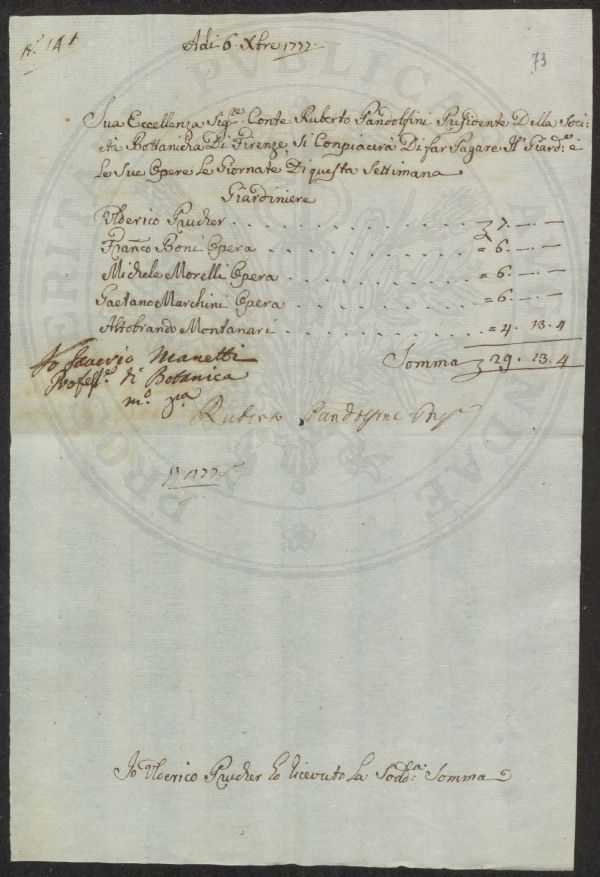 N.º 141
Adi 6. Xbre 1777.
73
Sua Eccellenza Sig.re Conte Ruberto Pandolfini Presidente Della Soci:
età Bottanicha Di Firenze, Si Conpiacerà Di far Pagare Il Giard.e e
Le Sue Opere Le Giornate Di questa Settimana
Giardiniere
Ulderico Prucher . . . . . . . . . 7. — —
Franco Boni Opera . . . . . . . = 6. — —
Michele Morelli Opera . . . . . . = 6. — —
Gaetano Marchini Opera . . . . . . = 6. — —
Altobrando Montanari . . . . . . = 4. 13. 4
Somma 29. 13. 4
Io Saverio Manetti
Profess.e di Botanica
m.o p.a
Ruberto Pandolfini
Io Ulderico Prucher ho riceuto La Sodd.a Somma
PROSPERITATI PUBLICAE AUGENDAE